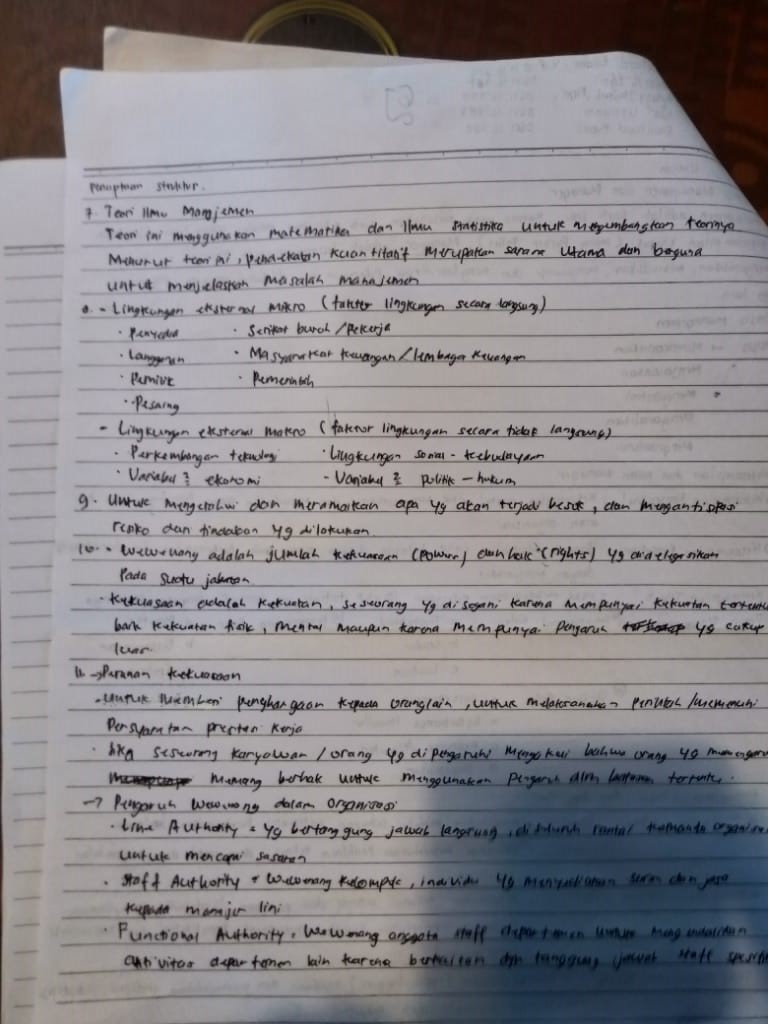 Penciptaan struktur.
7. Teori Ilmu Manajemen
Teori ini menggunakan matematika dan Ilmu statistika untuk mengembangkan teorinya
Menurut teori ini, pendekatan kuantitatif merupakan sarana utama dan berguna
untuk menjelaskan masalah manajemen
8. - Lingkungan eksternal mikro (faktor lingkungan secara langsung)
· Penyedia · Serikat buruh / Pekerja
· Langganan · Masyarakat keuangan / lembaga keuangan
· Pemilik · Pemerintah
· Pesaing
- Lingkungan eksternal makro (faktor lingkungan secara tidak langsung)
· Perkembangan teknologi · Lingkungan sosial - kebudayaan
· Variabel ² ekonomi · Variabel ² politik - hukum
9. Untuk mengetahui dan meramalkan apa yg akan terjadi besok, dan mengantisipasi
resiko dan tindakan yg dilakukan.
10. · Wewenang adalah jumlah kekuasaan (power) dan hak (rights) yg didelegasikan
Pada suatu jabatan.
· Kekuasaan adalah kekuatan, seseorang yg disegani karena mempunyai kekuatan tertentu
baik kekuatan fisik, mental maupun karena mempunyai pengaruh yg cukup
luas.
11. → Peranan kekuasaan
· Untuk memberi penghargaan kepada orang lain, untuk melaksanakan perintah / memenuhi
Persyaratan prestasi kerja
· bhg seseorang karyawan / orang yg dipengaruhi mengakui bahwa orang yg
memang berhak untuk menggunakan pengaruh dlm batasan tertentu.
→ Pengaruh wewenang dalam organisasi
· Line Authority = yg bertanggung jawab langsung, di seluruh rantai komando
untuk mencapai sasaran
· Staff Authority = Wewenang kelompok, individu yg menyediakan saran dan jasa
kepada manajer lini
· Functional Authority = Wewenang anggota staff departemen untuk mengendalikan
aktivitas departemen lain karena berkaitan dgn tanggung jawab staff